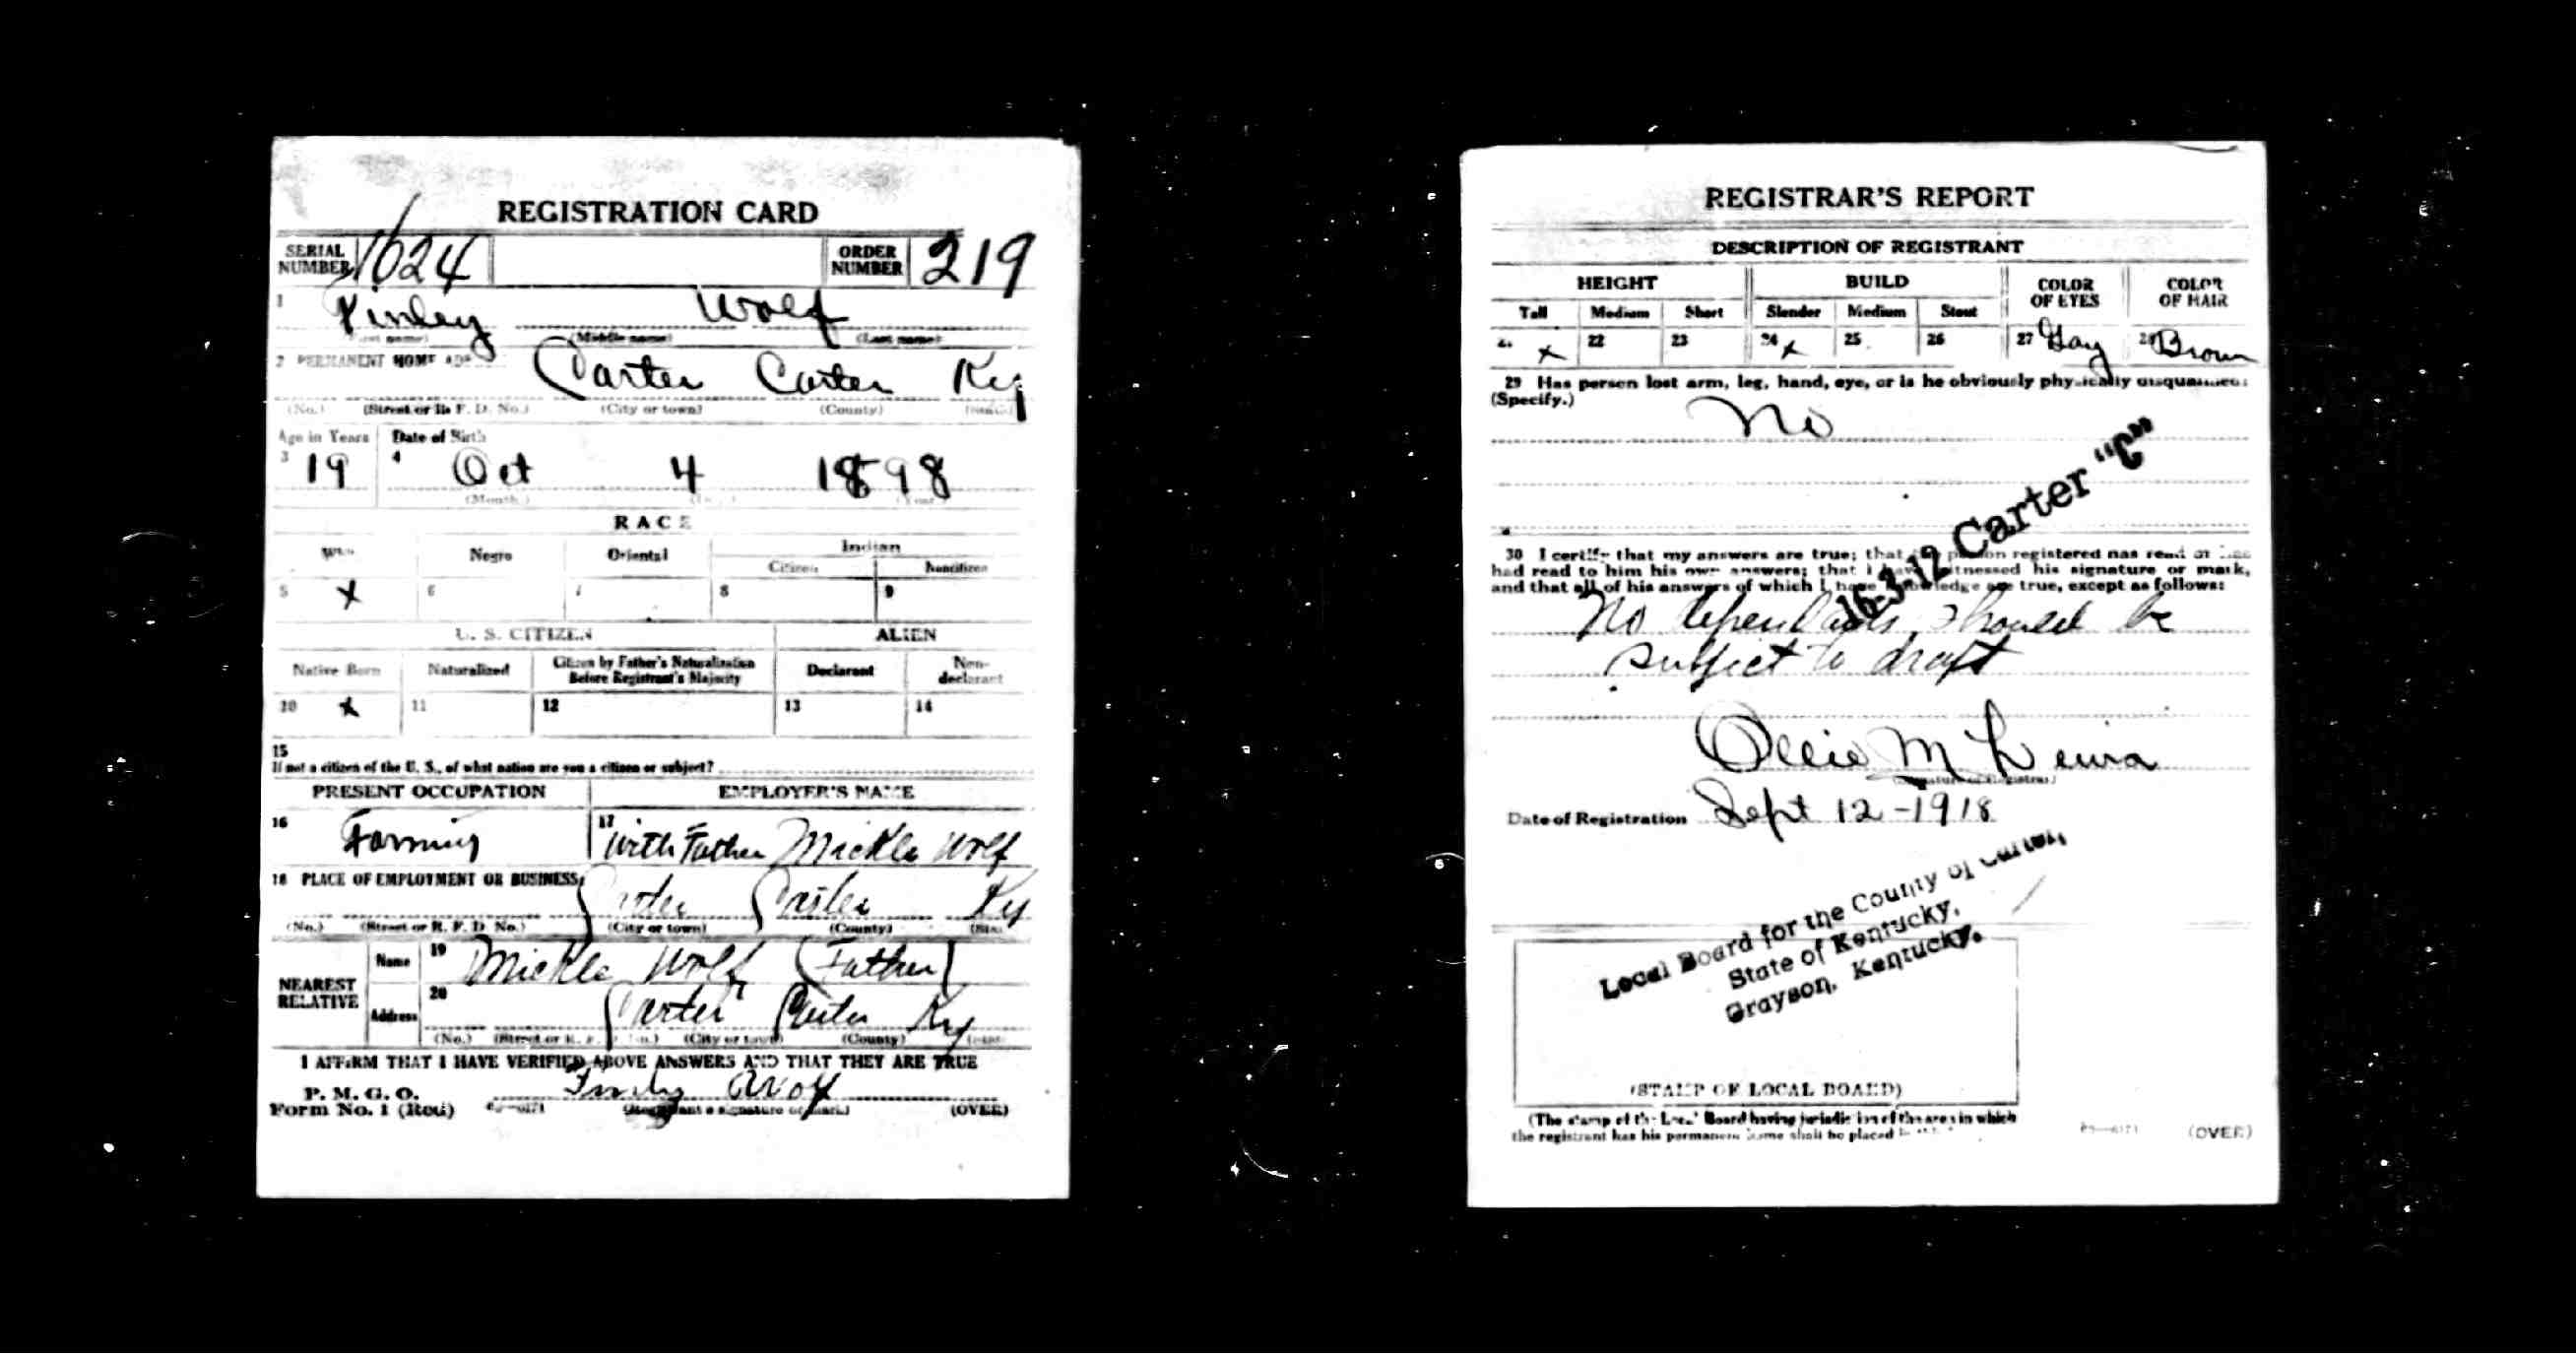 REGISTRATION CARD
SERIAL NUMBER 1624 ORDER NUMBER 219
1 Finley Wolf
(First name) (Middle name) (Last name)
2 PERMANENT HOME ADD Carter Carter Ky
(No.) (Street or R. F. D. No.) (City or town) (County) (State)
Age in Years Date of Birth
3 19 4 Oct 4 1898
(Month.) (Day.) (Year.)
RACE
White Negro Oriental Indian
Citizen Noncitizen
5 X 6 7 8 9
U. S. CITIZEN ALIEN
Native Born Naturalized Citizen by Father's Naturalization Before Registrant's Majority Declarant Non-declarant
10 X 11 12 13 14
15
If not a citizen of the U. S., of what nation are you a citizen or subject?
PRESENT OCCUPATION EMPLOYER'S NAME
16 Farming 17 With Father Mickle Wolf
18 PLACE OF EMPLOYMENT OR BUSINESS:
Carter Carter Ky
(No.) (Street or R. F. D. No.) (City or town) (County) (State)
NEAREST RELATIVE Name 19 Mickle Wolf (Father)
Address 20 Carter Carter Ky
(No.) (Street or R. F. D. No.) (City or town) (County) (State)
I AFFIRM THAT I HAVE VERIFIED ABOVE ANSWERS AND THAT THEY ARE TRUE
P. M. G. O.
Form No. 1 (Red) Finly Wolf
(Registrant's signature or mark.) (OVER)
REGISTRAR'S REPORT
DESCRIPTION OF REGISTRANT
HEIGHT BUILD COLOR OF EYES COLOR OF HAIR
Tall Medium Short Slender Medium Stout
21 X 22 23 24 X 25 26 27 Gay 28 Brown
29 Has person lost arm, leg, hand, eye, or is he obviously physically disqualified?
(Specify.)
No
16-3-12 Carter "C"
30 I certify that my answers are true; that the person registered has read or has
had read to him his own answers; that I have witnessed his signature or mark,
and that all of his answers of which I have knowledge are true, except as follows:
No dependants, should be
subject to draft
Ollie M Lewis
(Signature of Registrar)
Date of Registration Sept 12 - 1918
Local Board for the County of Carter,
State of Kentucky,
Grayson, Kentucky.
(STAMP OF LOCAL BOARD)
(The stamp of the Local Board having jurisdiction of the area in which
the registrant has his permanent home shall be placed in
(OVER)